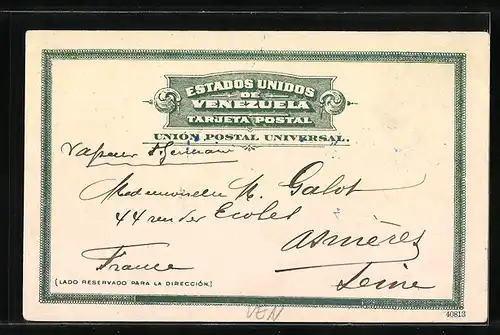 ESTADOS UNIDOS
DE
VENEZUELA
TARJETA POSTAL
UNIÓN POSTAL UNIVERSAL.
Vapeur St Germain
Mademoiselle M. Galot
44 rue des Ecoles
Asnières
France
Seine
(LADO RESERVADO PARA LA DIRECCIÓN.)
VEN
40813